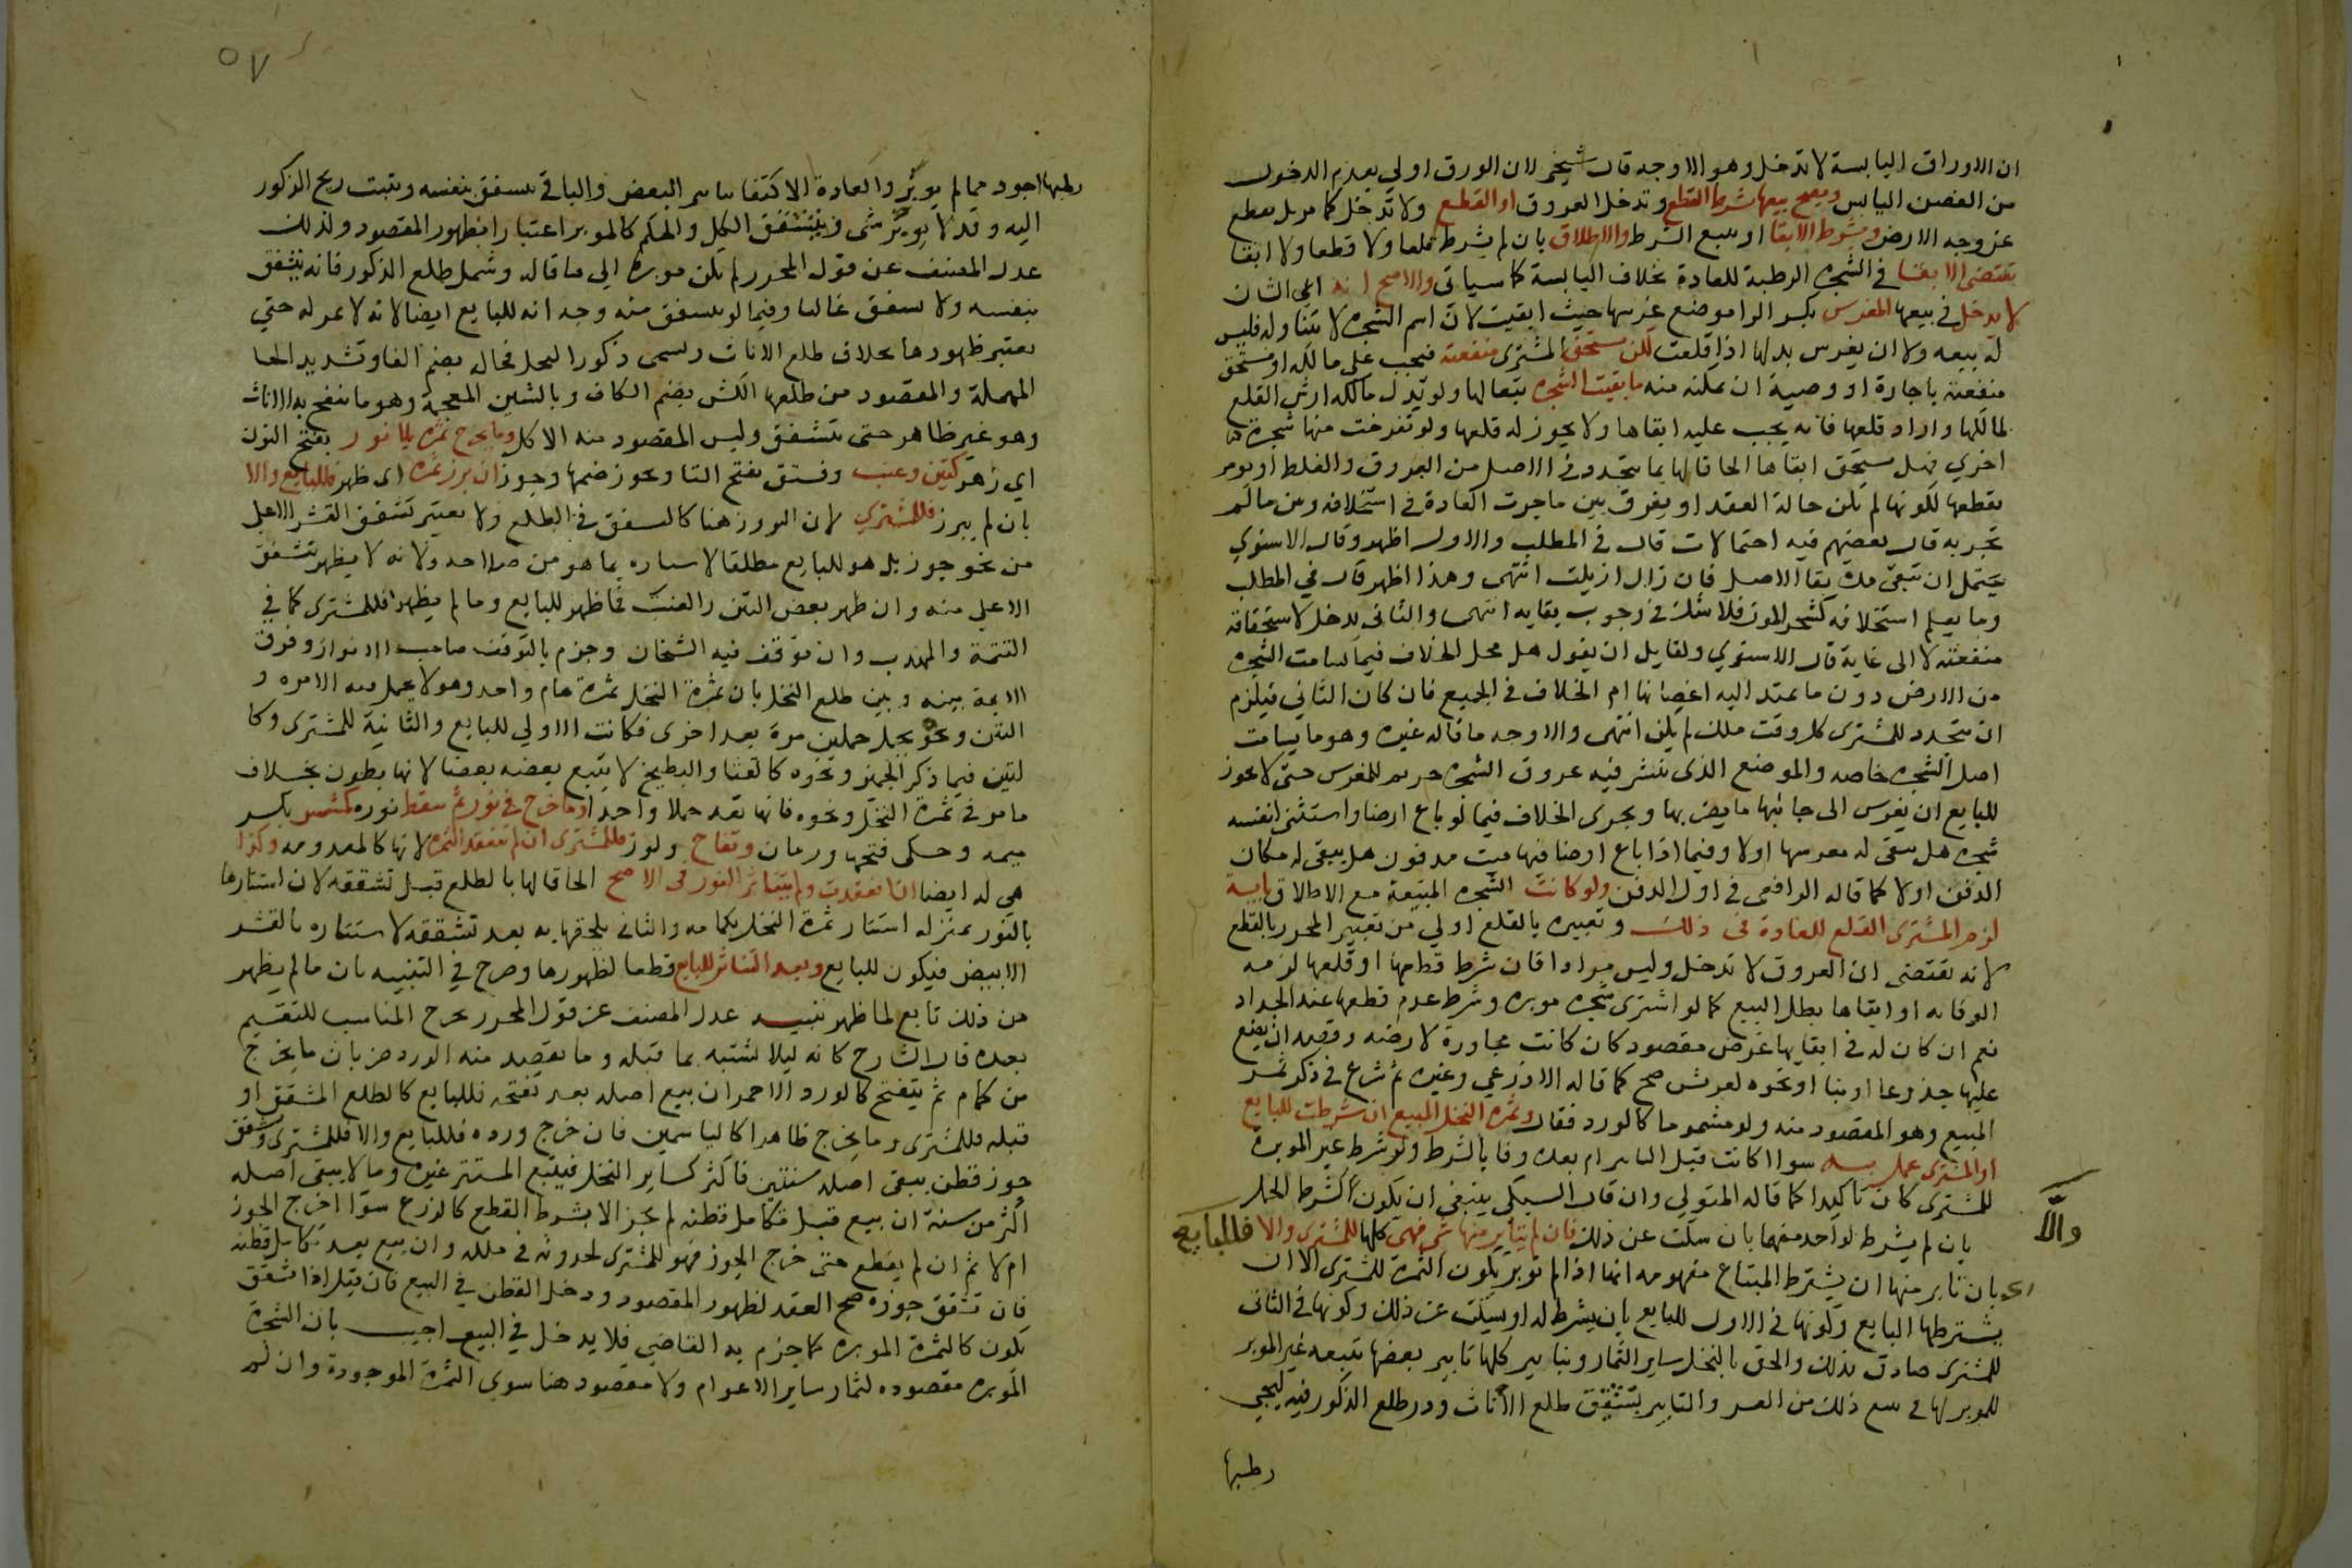 ان الاوراق اليابسة لا تدخل وهو الاوجه قال شيخي لان الورق اولى بعدم الدخول
من الغصن اليابس ويصح بيعها بشرط القطع وتدخل العروق او القطع ولا تدخل كما مر بل تقطع
عن وجه الارض وبشرط الابقا او يتبع الشرط والاطلاق بان لم يشرط قلعا ولا قطعا ولا ابقا
تقتضي الابقا في الشجرة الرطبة للعادة بخلاف اليابسة كما سياتي والاصح انه اي الشان
لا يدخل في بيعها المغرس بكسر الرا موضع غرسها حيث ابقيت لان اسم الشجرة لا يتناوله فليس
له بيعه ولا ان يغرس بدلها اذا قلعت لكن يستحق المشتري منفعته فيجب على مالكه او مستحق
منفعته باجارة او وصية ان يمكنه منه ما بقيت الشجرة تبعا لها ولو بذل مالكه ارش القلع
لمالكها واراد قلعها فانه يجب عليه ابقاها ولا يجوز له قلعها ولو تفرخت منها شجرة
اخرى فهل يستحق ابقاها الحاقا لها بما يتجدد في الاصل من العروق والغلظ او يومر
بقطعها لكونها لم تكن حالة العقد او يفرق بين ما جرت العادة في استخلافه وبين ما لم
تجر به قال بعضهم فيه احتمالات قال في المطلب والاول اظهر وقال الاسنوي
يحتمل ان تبقى مدة بقا الاصل فان زال ازيلت انتهى وهذا اظهر قال في المطلب
وما يعلم استخلافه كشجر الموز فلا شك في وجوب بقايه انتهى والثاني يدخل لاستحقاقه
منفعته لا الى غاية قال الاسنوي ولقايل ان يقول هل محل الخلاف فيما يسامت الشجرة
من الارض دون ما يمتد اليه اغصانها ام الخلاف في الجميع فان كان الثاني فيلزم
ان يتجدد للمشتري كل وقت ملك لم يكن انتهى والاوجه ما قاله غيره وهو ما يسامت
اصل الشجرة خاصه والموضع الذي ينتشر فيه عروق الشجرة حريم للمغرس حتى لا يجوز
للبايع ان يغرس الى جانبها ما يضر بها ويجرى الخلاف فيما لو باع ارضا واستثنى لنفسه
شجرة هل يبقى له مغرسها اولا وفيما اذا باع ارضا فيها ميت مدفون هل يبقى له مكان
الدفن اولا كما قاله الرافعي في اول الدفن ولو كانت الشجرة المبيعة مع الاطلاق يابسة
لزم المشتري القلع للعادة في ذلك وتعبيره بالقلع اولى من تعبير المحرر بالقطع
لانه يقتضي ان العروق لا تدخل وليس مرادا فان شرط قطعها او قلعها لزمه
الوفا به او ابقاها بطل البيع كما لو اشترى شجرة موبرة وشرط عدم قطعها عند الجداد
نعم ان كان له في ابقايها غرض مقصود كان كانت مجاورة لارضه وقصد ان يضع
عليها جذوعا او بنا او نحوه لعريش صح كما قاله الاذرعي وغيره ثم شرع في ذكر ثمر
المبيع وهو المقصود منه ولو مشموما كالورد فقال وثمرة النخل المبيع ان شرطت للبايع
او المشتري عمل به سوا اكانت قبل التابير ام بعده وفا بالشرط ولو شرط غير الموبرة
للمشتري كان تاكيدا كما قاله المتولي وان قال السبكي ينبغي ان يكون كشرط الحمل
والا بان لم يشرط لواحد منهما بان سكت عن ذلك فان لم يتابر منها شي فهي كلها للمشتري والا فللبايع
اي بان تابر منها ان يشترط المبتاع مفهومه انها اذا لم توبر يكون الثمرة للمشتري الا ان
يشترطها البايع وكونها في الاول للبايع بان يشرط له او يسكت عن ذلك وكونها في الثاني
للمشتري صادق بذلك والحق بالنخل ساير الثمار وبتابير كلها تابير بعضها بتبعه غير الموبر
للموبر لما في تتبع ذلك من العسر والتابير بتشقيق طلع الاناث وذر طلع الذكور فيه ليجي
رطبها
٥٧
رطبها اجود مما لم يوبر والعادة الاكتفا بتابير البعض والباقي يتشقق بنفسه وينبث ريح الذكور
اليه وقد لا يوبر شي ويتشقق الكل والحكم كالموبر اعتبارا بظهور المقصود ولذلك
عدل المصنف عن قول المحرر لم تكن موبرة الى ما قاله وشمل طلع الذكور فانه يتشقق
بنفسه ولا يشقق غالبا وفيما لو يتشقق منه وجه انه للبايع ايضا لانه لا ثمر له حتى
يعتبر ظهورها بخلاف طلع الاناث ويسمى ذكور النخل فحال بضم الفا وتشديد الحا
المهملة والمقصود من طلعها الكش بضم الكاف وبالشين المعجمة وهو ما ينفح به الاناث
وهو غير ظاهر حتى يتشقق وليس المقصود منه الاكل وما يخرج ثمره بلا نور بفتح النون
اي زهر كتين وعنب وفستق بفتح التا ويجوز ضمها وجوز ان برز ثمره اي ظهر فللبايع والا
بان لم يبرز فللمشتري لان البروز هنا كالتشقق في الطلع ولا يعتبر تشقق القشر الاعلى
من نحو جوز بل هو للبايع مطلقا لاستتاره بما هو من صلاحه ولانه لا يظهر تشقق
الاعلى منه وان ظهر بعض التين والعنب فما ظهر للبايع وما لم يظهر فللمشتري كما في
التتمة والمهذب وان توقف فيه الشيخان وجزم بالتوقف صاحب الانوار وفرق
الايمة بينه وبين طلع النخل بان ثمرة النخل ثمرة عام واحد وهو لا يحمل فيه الا مرة و
التين ونحوه يحمل حملين مرة بعد اخرى فكانت الاولى للبايع والثانية للمشتري وكا
لتين فيما ذكر الجميز ونحوه كالقثا والبطيخ لا يتبع بعضه بعضا لانها بطون بخلاف
ما مر في ثمرة النخل ونحوه فانها تعد حملا واحدا وما خرج في نور ثم سقط نوره كمشمش بكسر
ميمه وحكى فتحها ورمان وتفاح ولوز فللمشتري ان لم تنعقد الثمرة لانها كالمعدومة وكذا
هي له ايضا ان انعقدت ولم يتناثر النور في الاصح الحاقا لها بالطلع قبل تشققه لان استتارها
بالنور بمنزلة استتار ثمرة النخل بكمامه والثاني يلحقها به بعد تشققه لاستتاره بالقشر
الابيض فيكون للبايع وبعد التناثر للبايع قطعا لظهورها وصرح في التنبيه بان ما لم يظهر
من ذلك تابع لما ظهر تنبيه عدل المصنف عن قول المحرر يخرج المناسب للتقسيم
بعده قال الشارح كانه ليلا يشتبه بما قبله وما يقصد منه الورد ضربان ما يخرج
من كمام ثم يتفتح كالورد الاحمر ان بيع اصله بعد تفتحه فللبايع كالطلع المشقق او
قبله فللمشتري وما يخرج ظاهرا كالياسمين فان خرج ورده فللبايع والا فللمشتري وتشقق
جوز قطن يبقى اصله سنتين فاكثر كساير النخل فيتبع المستتر غيره وما لا يبقى اصله
اكثر من سنة ان بيع قبل تكامل قطنه لم يجز الا بشرط القطع كالزرع سوا اخرج الجوز
ام لا ثم ان لم يقطع حتى خرج الجوز فهو للمشتري لحدوثه في ملكه وان بيع بعد تكامل قطنه
فان تشقق جوزه صح العقد لظهور المقصود ودخل القطن في البيع فان قيل اذا تشقق
يكون كالثمرة الموبرة كما جزم به القاضي فلا يدخل في البيع اجيب بان الشجرة
الموبرة مقصودة لثمار ساير الاعوام ولا مقصود هنا سوى الثمرة الموجودة وان لم